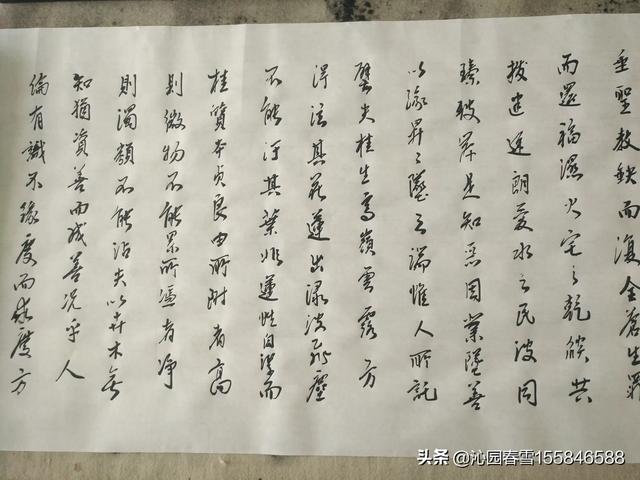 垂聖教缺而復全蒼生罪
而還福濕火宅之乾燄共
拔迷途朗愛水之昏波同
臻彼岸是知惡因業墜善
以緣昇〻墜之端惟人所託
譬夫桂生高嶺雲露方
得泫其花蓮出淥波飛塵
不能汙其葉非蓮性自潔而
桂質本貞良由所附者高
則微物不能累所憑者净
則濁類不能沾夫以卉木無
知猶資善而成善況乎人
倫有識不緣慶而求慶方
头条 @沁园春雪155846588